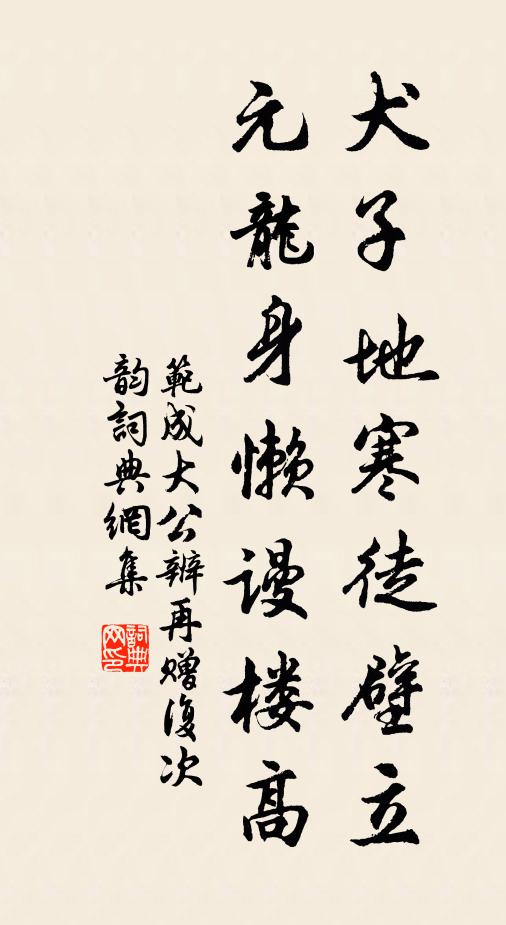 犬子地寒徒壁立
元龍身懶謾楼高
範成大公辨再贈復次
韵詞典網集
詞典
网印